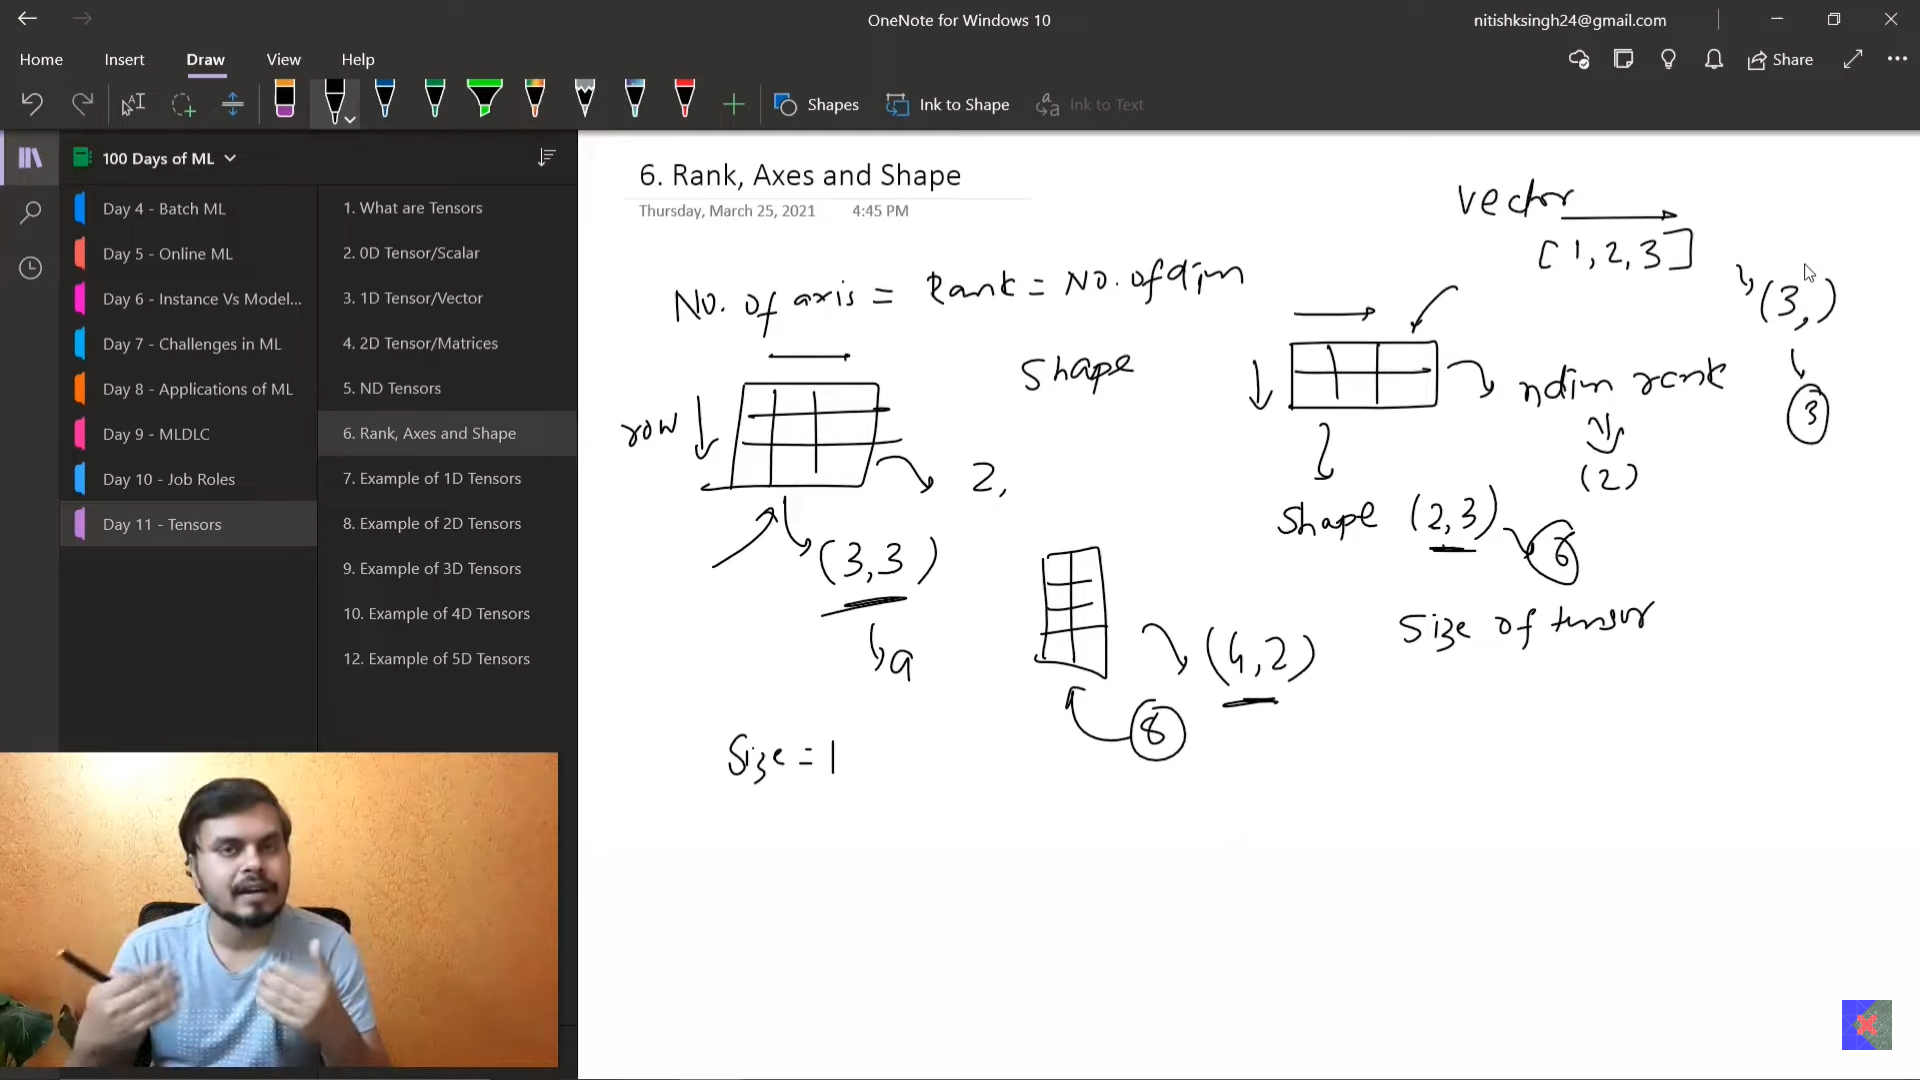 OneNote for Windows 10
nitishksingh24@gmail.com
Home Insert Draw View Help
Share
Shapes Ink to Shape Ink to Text
100 Days of ML
Day 4 - Batch ML
Day 5 - Online ML
Day 6 - Instance Vs Model...
Day 7 - Challenges in ML
Day 8 - Applications of ML
Day 9 - MLDLC
Day 10 - Job Roles
Day 11 - Tensors
1. What are Tensors
2. 0D Tensor/Scalar
3. 1D Tensor/Vector
4. 2D Tensor/Matrices
5. ND Tensors
6. Rank, Axes and Shape
7. Example of 1D Tensors
8. Example of 2D Tensors
9. Example of 3D Tensors
10. Example of 4D Tensors
12. Example of 5D Tensors
6. Rank, Axes and Shape
Thursday, March 25, 2021 4:45 PM
vector
[1, 2, 3]
(3,)
3
No. of axis = Rank = No. of dim
Shape
row
2,
(3,3)
9
ndim rank
(2)
Shape (2,3)
6
Size of tensor
(4,2)
8
Size = 1